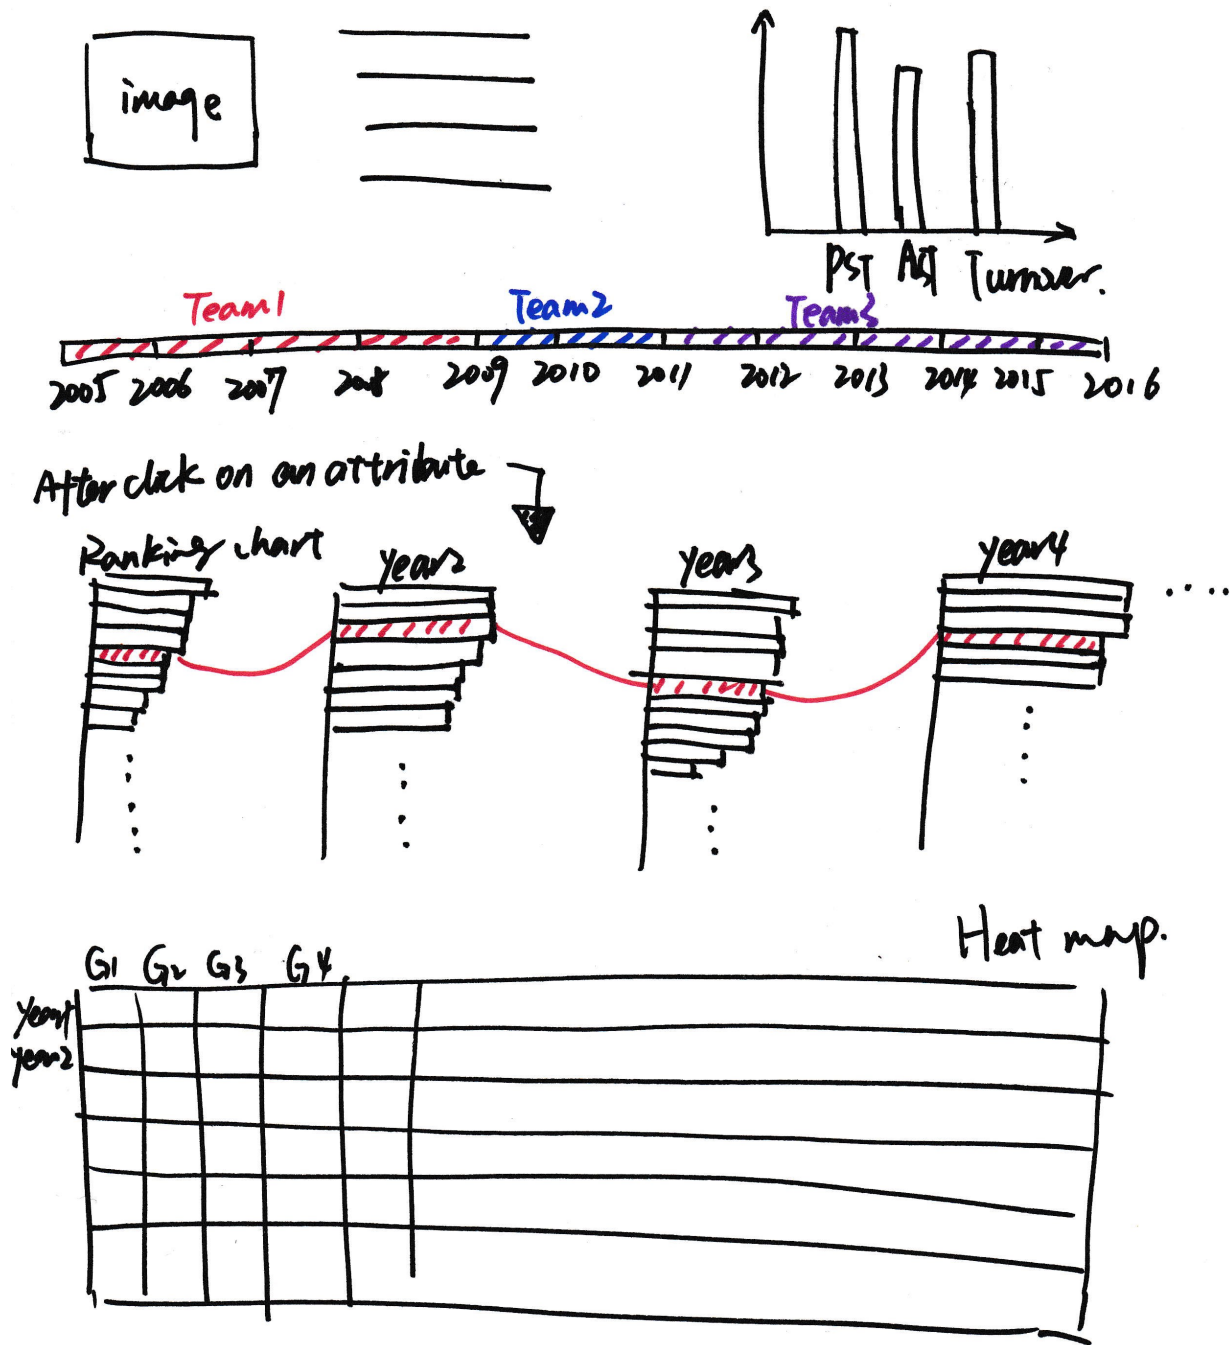 image
PST AST Turnover.
Team1 Team2 Team3
2005 2006 2007 2008 2009 2010 2011 2012 2013 2014 2015 2016
After click on an attribute
Ranking chart year2 year3 year4
Heat map.
G1 G2 G3 G4
year1
year2